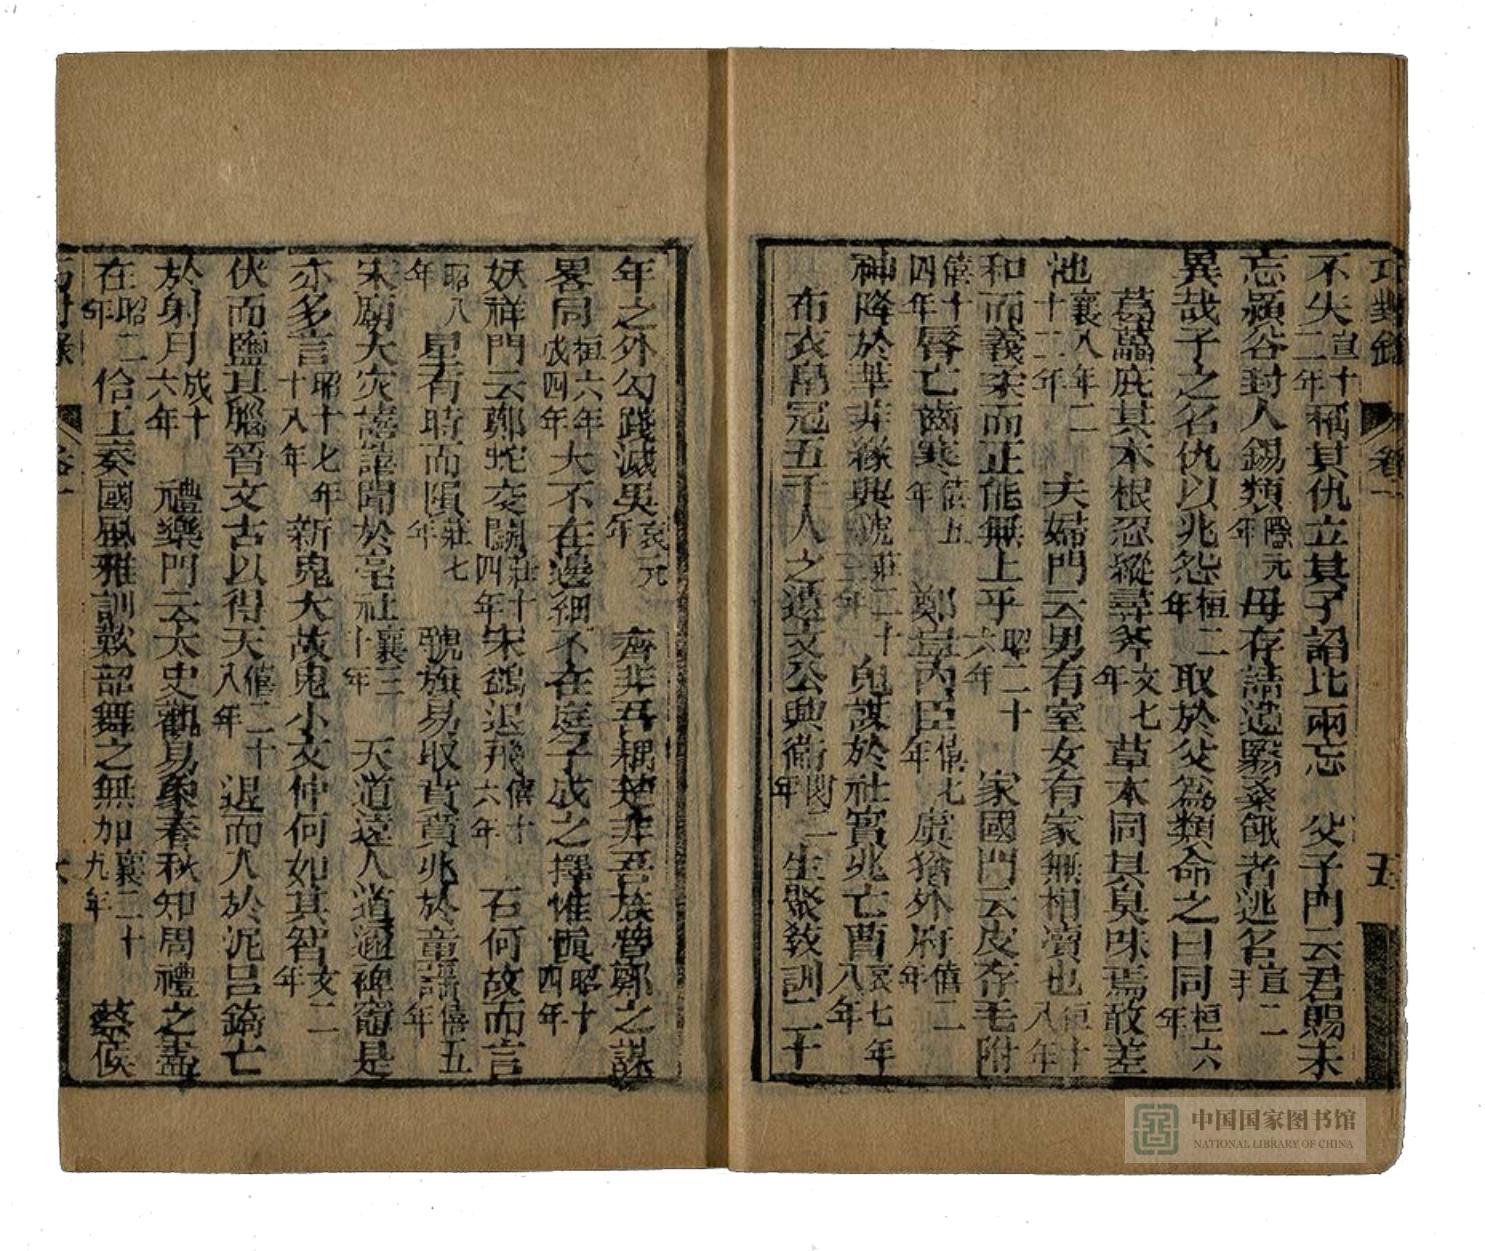 巧對錄 卷一 五
不失宣十二年稱其仇立其子諂比兩忘 父子門云君賜未
忘潁谷封人錫類隱元年 母存請遺翳桑餓者逃名宣二年
異哉子之名仇以兆怨桓二年 取於父爲類命之曰同桓六年
葛藟庇其本根忍縱尋斧文七年 草木同其臭味焉敢差
池襄八年二十二年 夫婦門云男有室女有家無相瀆也桓十八年
和而義柔而正能無上乎昭二十六年 家國門云皮存毛附
僖十四年脣亡齒寒僖五年 鄭豈內臣僖七年 虞猶外府僖二年
神降於莘非緣興虢莊三十二年 鬼謀於社實兆亡曹哀七年八年
布衣帛冠五千人之遺文公興衞閔二年 生聚敎訓二十
年之外勾踐滅吳哀元年 齊非吾耦楚非吾族曾鄭之謀
畧同桓六年成四年 大不在邊細不在庭子成之擇惟愼昭十四年
妖祥門云鄭蛇交鬭莊十四年 宋鷁退飛僖十六年 石何故而言
昭八年 星有時而隕莊七年 虢旂易取賁賁兆於童謠僖五年
宋廟大灾譆譆聞於亳社襄三十年 天道遠人道邇裨竈是
亦多言昭十七年十八年 新鬼大故鬼小文仲何如其智文二年
伏而盬其腦晉文古以得天僖二十八年 退而入於泥呂錡亡
於射月成十六年 禮樂門云太史觀易象春秋知周禮之盡
在昭二年 伶工奏國風雅訓歎韶舞之無加襄二十九年 蔡侯
巧對錄 卷一 六
中国国家图书馆
NATIONAL LIBRARY OF CHINA